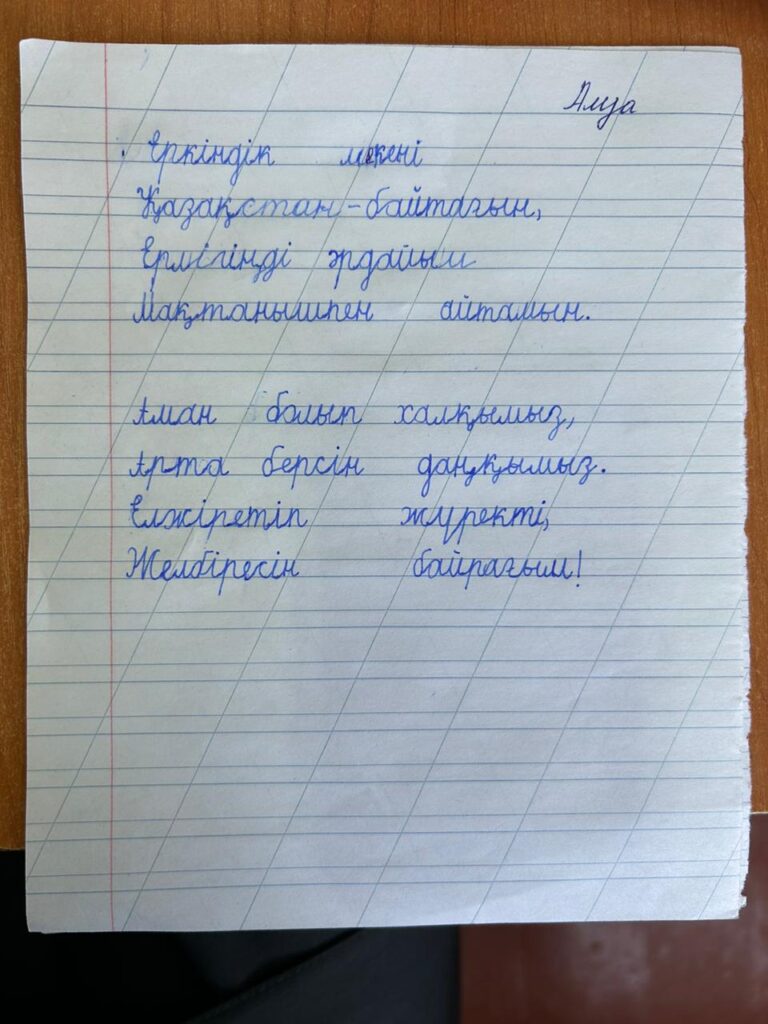 Алуа
Еркіндік мекені
Қазақстан-байтағын,
Ерлігіңді әрдайым
Мақтанышпен айтамын.
Аман болып халқымыз,
Арта берсін даңқымыз.
Елжіретіп жүректі,
Желбіресін байрағым!